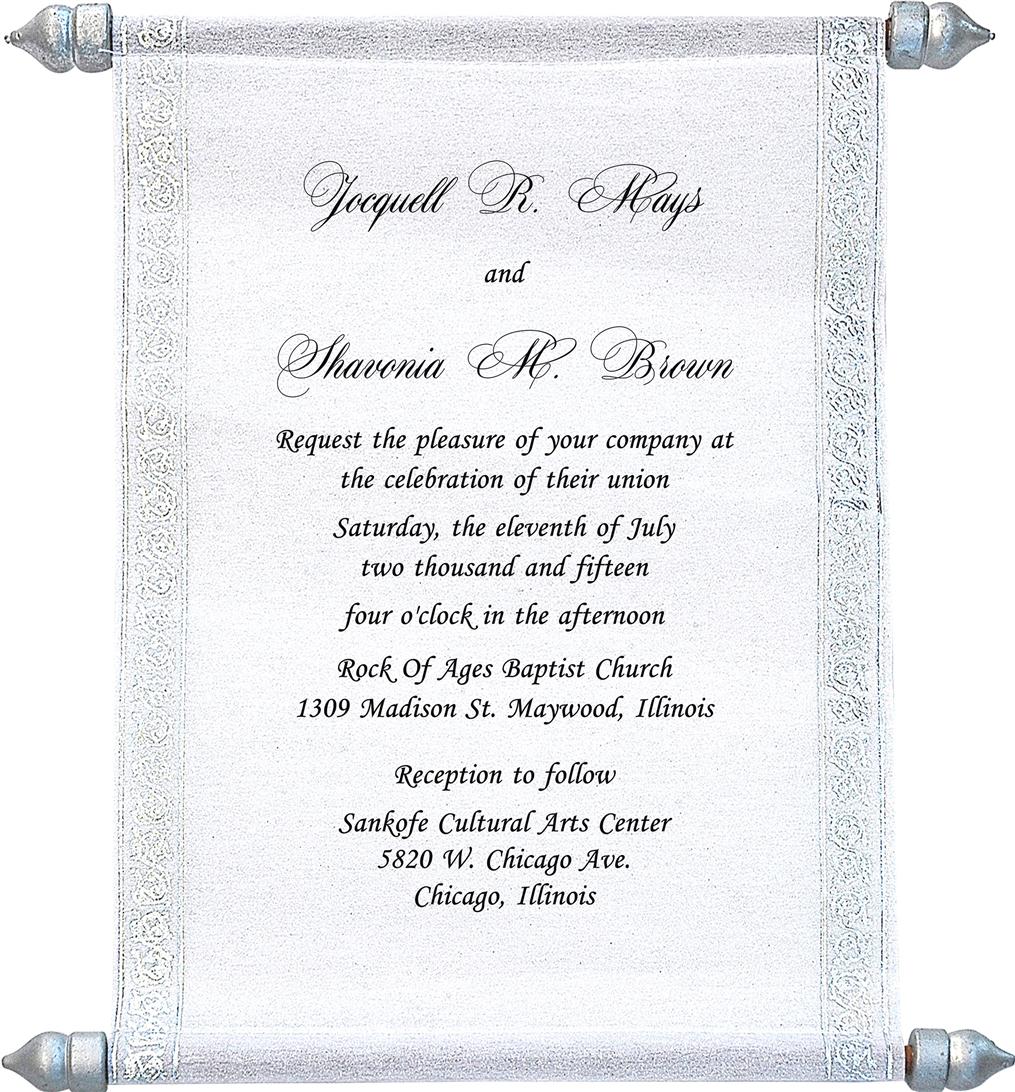 Jocquell R. Mays
and
Shavonia M. Brown
Request the pleasure of your company at
the celebration of their union
Saturday, the eleventh of July
two thousand and fifteen
four o'clock in the afternoon
Rock Of Ages Baptist Church
1309 Madison St. Maywood, Illinois
Reception to follow
Sankofe Cultural Arts Center
5820 W. Chicago Ave.
Chicago, Illinois